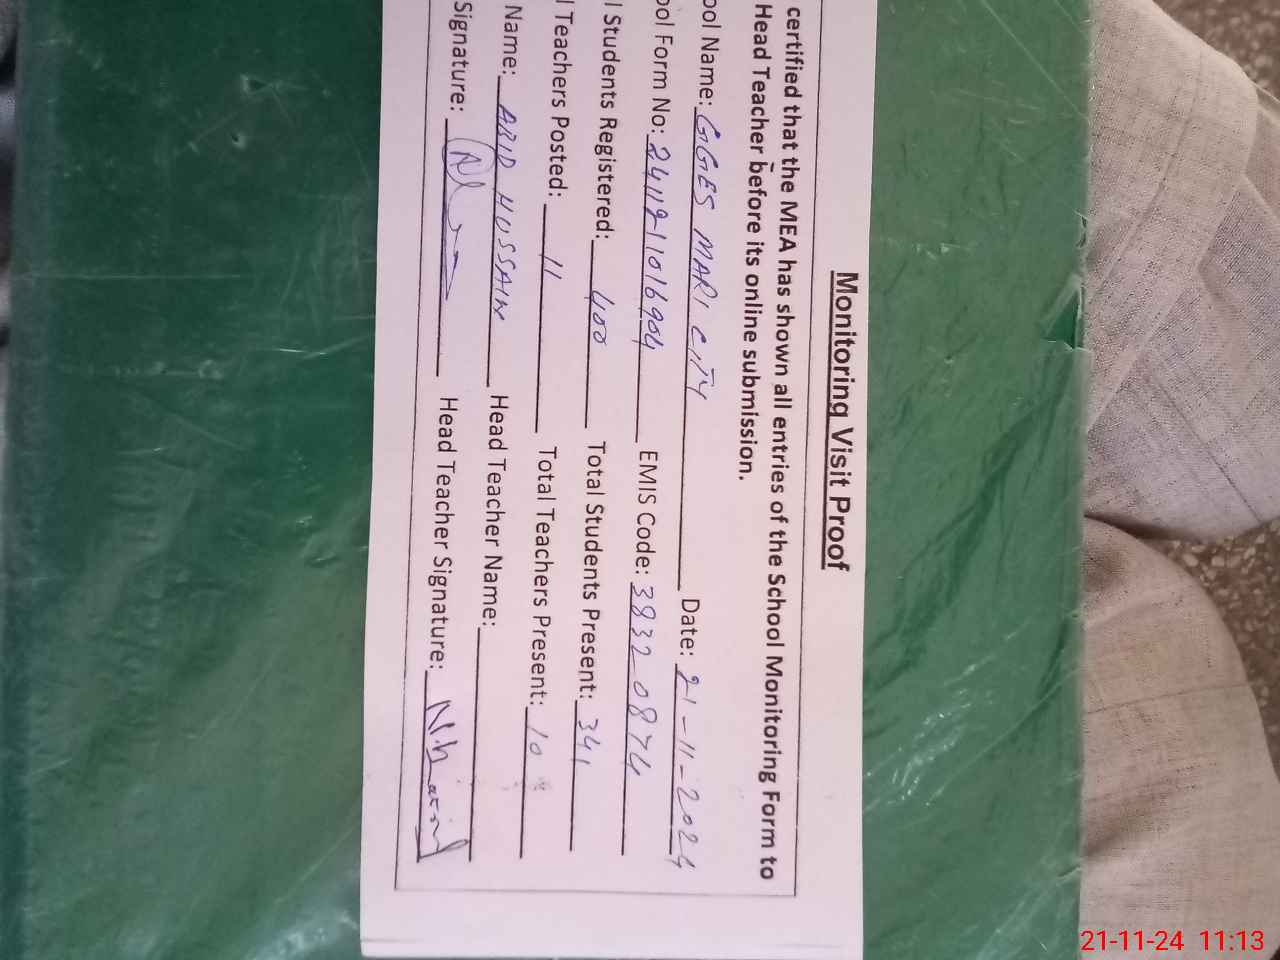 Monitoring Visit Proof
certified that the MEA has shown all entries of the School Monitoring Form to
Head Teacher before its online submission.
ool Name: GGES MARI CITY Date: 21-11-2024
ool Form No: 2411211016904 EMIS Code: 38320874
l Students Registered: 400 Total Students Present: 341
l Teachers Posted: 11 Total Teachers Present: 10
Name: ABID HUSSAIN Head Teacher Name:
Signature: Head Teacher Signature:
21-11-24 11:13